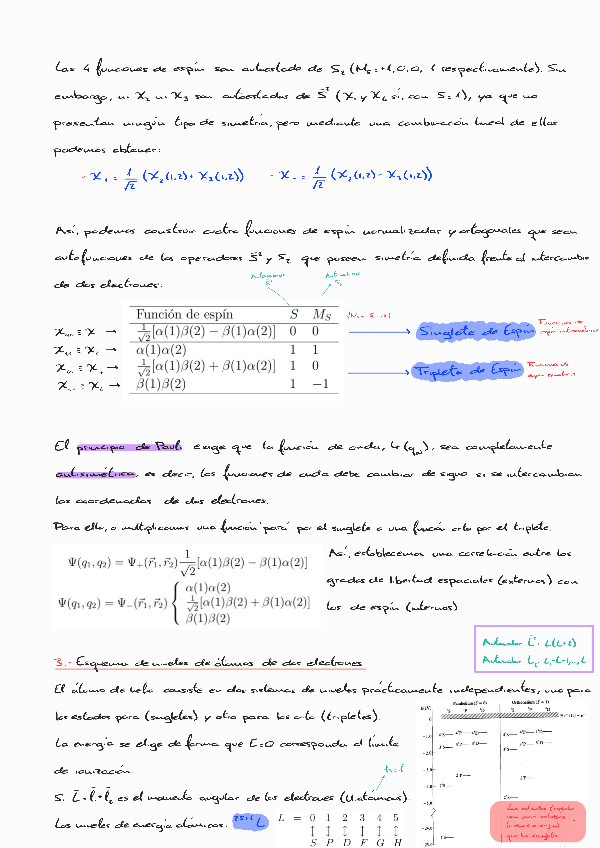 Las 4 funciones de espín son autoestado de S_z (M_s = +1,0,0, 1 respectivamente). Sin
embargo, ni χ_2 ni χ_3 son autoestados de S² (χ_1 y χ_4 sí, con S=1), ya que no
presentan ningún tipo de simetría, pero mediante una combinación lineal de ellas
podemos obtener:
- χ_+ = 1/√2 (χ_2(1,2) + χ_3(1,2)) - χ_- = 1/√2 (χ_2(1,2) - χ_3(1,2))
Así, podemos construir cuatro funciones de espín normalizadas y ortogonales que sean
autofunciones de los operadores S² y S_z que poseen simetría definida frente al intercambio
de dos electrones:
Autovalores S² Autovalores S_z
Función de espín S M_S
1/√2[α(1)β(2) − β(1)α(2)] 0 0
α(1)α(2) 1 1
1/√2[α(1)β(2) + β(1)α(2)] 1 0
β(1)β(2) 1 −1
Singlete de Espín
Funciones de espín antisimétrica
Triplete de Espín
Funciones de espín simétrica
El principio de Pauli exige que la función de onda, Ψ(q_N), sea completamente
antisimétrica, es decir, las funciones de onda debe cambiar de signo si se intercambian
las coordenadas de dos electrones.
Para ello, o multiplicamos una función "para" por el singlete o una función orto por el triplete.
Ψ(q1, q2) = Ψ+(r⃗1, r⃗2) 1/√2[α(1)β(2) − β(1)α(2)]
Ψ(q1, q2) = Ψ−(r⃗1, r⃗2) { α(1)α(2)
1/√2[α(1)β(2) + β(1)α(2)]
β(1)β(2)
Así, establecemos una correlación entre los
grados de libertad espaciales (externos) con
los de espín (internos)
Autovalor L² = L(L+1)
Autovalor L_z = L, -L+1,...,L
3.- Esquema de niveles de átomos de dos electrones
El átomo de helio consiste en dos sistemas de niveles prácticamente independientes, uno para
los estados para (singletes) y otro para los orto (tripletes).
La energía se elige de forma que E=0 corresponda al límite
de ionización.
ħ=1
Si L = l_1 + l_2 es el momento angular de los electrones (U.atómicas).
Los niveles de energía atómicas: 2S+1 L
L = 0 1 2 3 4 5
↕ ↕ ↕ ↕ ↕ ↕
S P D F G H
Parahelium (S = 0) Orthohelium (S = 1)